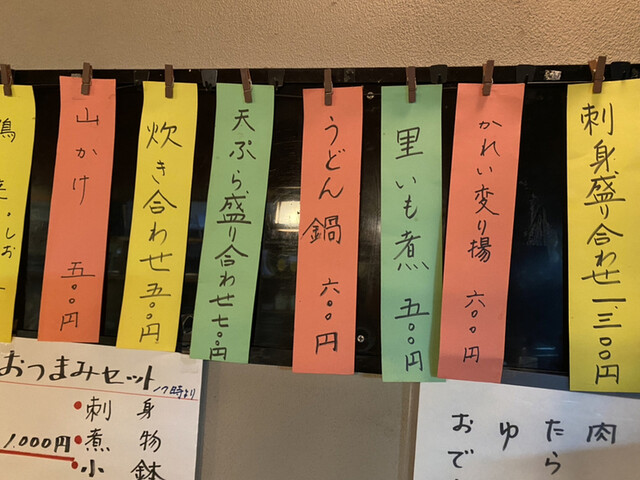 刺身盛り合わせ 一、三〇〇円
かれい変り揚 六〇〇円
里いも煮 五〇〇円
うどん鍋 六〇〇円
天ぷら盛り合わせ 七〇〇円
炊き合わせ 五〇〇円
山かけ 五〇〇円
おつまみセット 17時より
刺身
1,000円
煮物
小鉢
肉
たら
ゆ
おで